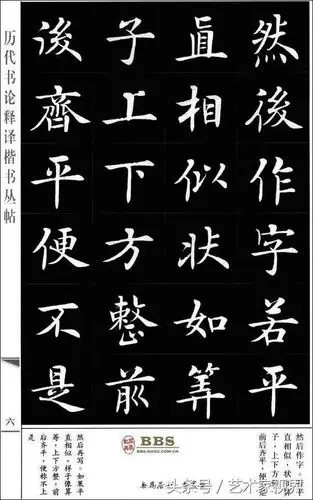 然後作字若平
直相似状如筭
子上下方整前
後齊平便不是
历代书论释译楷书丛帖
六
然后作字。若平
直相似，状如
子，上下方
前后齐平，便
然后再写。如果平
直相似，样子像算
筹，上下方整，前
后齐平，便称不上
是
BBS
头条号/艺术家